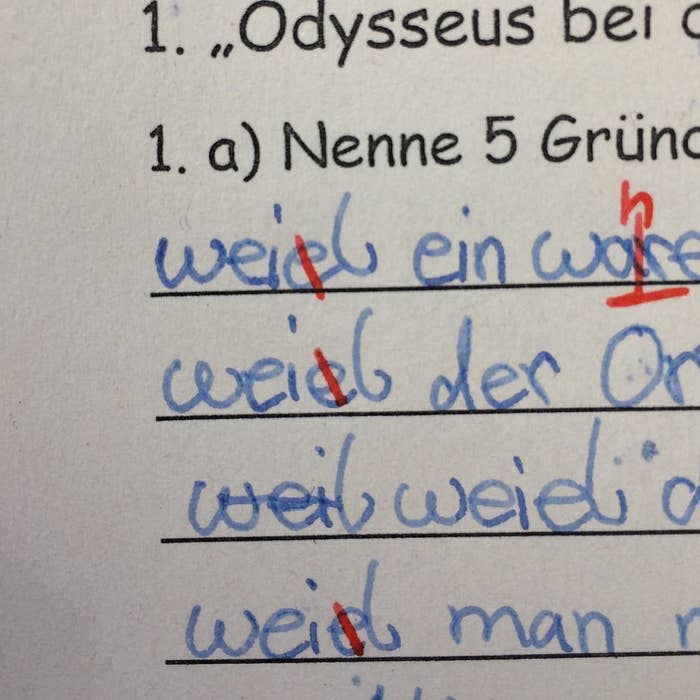 1. „Odysseus bei
1. a) Nenne 5 Grün
h
weiel ein ware
weiel der Or
weil weiel
weiel man